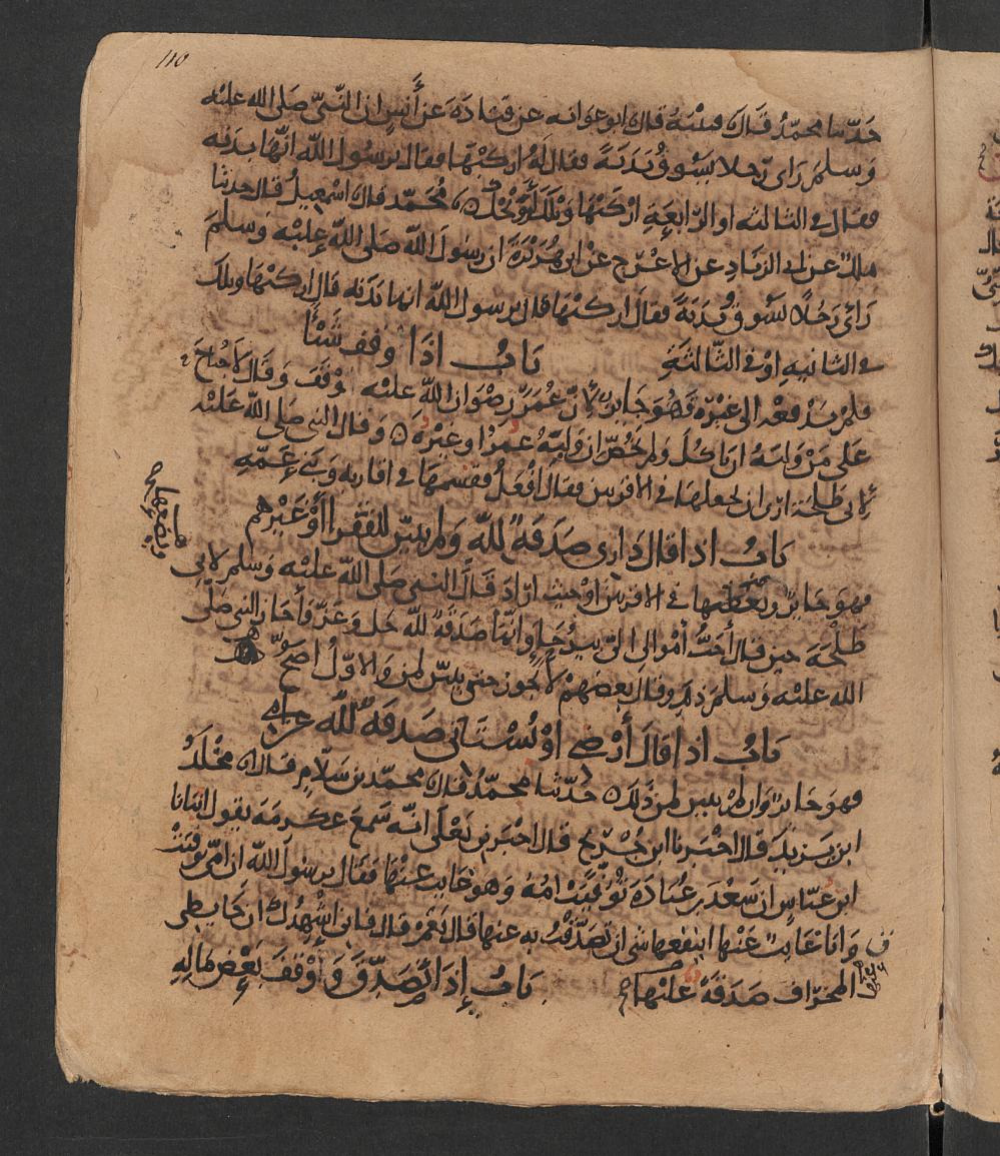 110
حدثنا محمد قال قتيبة قال ابو عوانه عن قتادة عن أنس ان النبي صلى الله عليه
وسلم راى رجلا يسوق بدنة فقال له اركبها فقال يرسول الله انها بدنه
فقال في الثالثه او الرابعة اركبها ويلك أو ويحك ه محمد قال اسمعيل قال حدثنا
ملك عن ابي الزناد عن الاعرج عن ابي هريرة ان رسول الله صلى الله عليه وسلم
رأى رجلا يسوق بدنة فقال اركبها قال يرسول الله انها بدنه قال اركبها ويلك
في الثانيه او في الثالثة باب اذا وقف شيئا
فلم يدفعه الى غيره فهو جايز لأن عمر رضوان الله عليه اوقف وقال لا جناح
على من وليه ان ياكل ولم يخص ان وليه عمر او غيره ه وقال النبي صلى الله عليه
لابي طلحة ارى ان تجعلها في الاقربين فقال افعل فقسمها في اقاربه وبني عمه
باب اذا قال داري صدقة لله ولم يبين للفقرا أو غيرهم
فهو جايز ويعطيها في الاقربين او حيث اراد قال النبي صلى الله عليه وسلم لابي
ويضعها
طلحة حين قال أحب أموالي الي بيرحا وانها صدقة لله عز وجل فأجاز النبي صلى
الله عليه وسلم ذلك وقال بعضهم لا يجوز حتى يبين لمن والاول اصح
باب اذا قال أرضي او بستاني صدقة لله عن امي
فهو جايز وان لم يبين لمن ذلك ه حدثنا محمد قال محمد بن سلام قال مخلد
ابن يزيد قال اخبرنا ابن جريج قال اخبرني يعلى انه سمع عكرمة يقول انبانا
ابن عباس ان سعد بن عبادة توفيت امه وهو غايب عنها فقال يرسول الله ان امي توفيت
وانا غايب عنها اينفعها شي ان تصدقت به عنها قال نعم قال فاني اشهدك ان حايطي
المخراف صدقة عليها باب إذا تصدق وأوقف بعض ماله